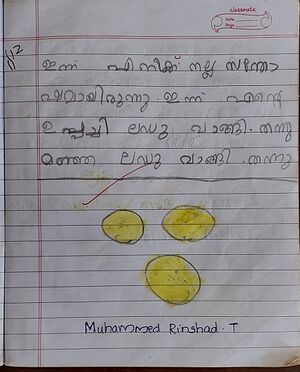 classmate
Date
Page
ഇന്ന് എനിക്ക് നല്ല സന്തോ
ഷമായിരുന്നു. ഇന്ന് എന്റെ
ഉപ്പച്ചി ലഡു വാങ്ങി. തന്നു
മഞ്ഞ ലഡു വാങ്ങി. തന്നു
Muhammed Rinshad. T